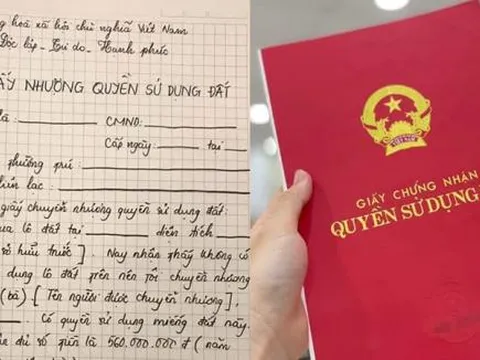 ng hoà xã hội chủ nghĩa Việt Nam
Độc lập - Tự do - Hạnh phúc
ẤY NHƯỢNG QUYỀN SỬ DỤNG ĐẤT
là: CMND:
Cấp ngày: tại
phường phú:
liên lạc:
giấy chuyển nhượng quyền sử dụng đất:
ua lô đất tại diện tích
sở hữu trước]. Nay nhận thấy không có
dụng lô đất trên nên tôi chuyển nhượng
(bà). [Tên người được chuyển nhượng],
Có quyền sử dụng miếng đất này.
chi số tiền là 560.000.000 đ (năm
VIỆT NAM
GIẤY CHỨNG NHẬN
QUYỀN SỬ DỤNG